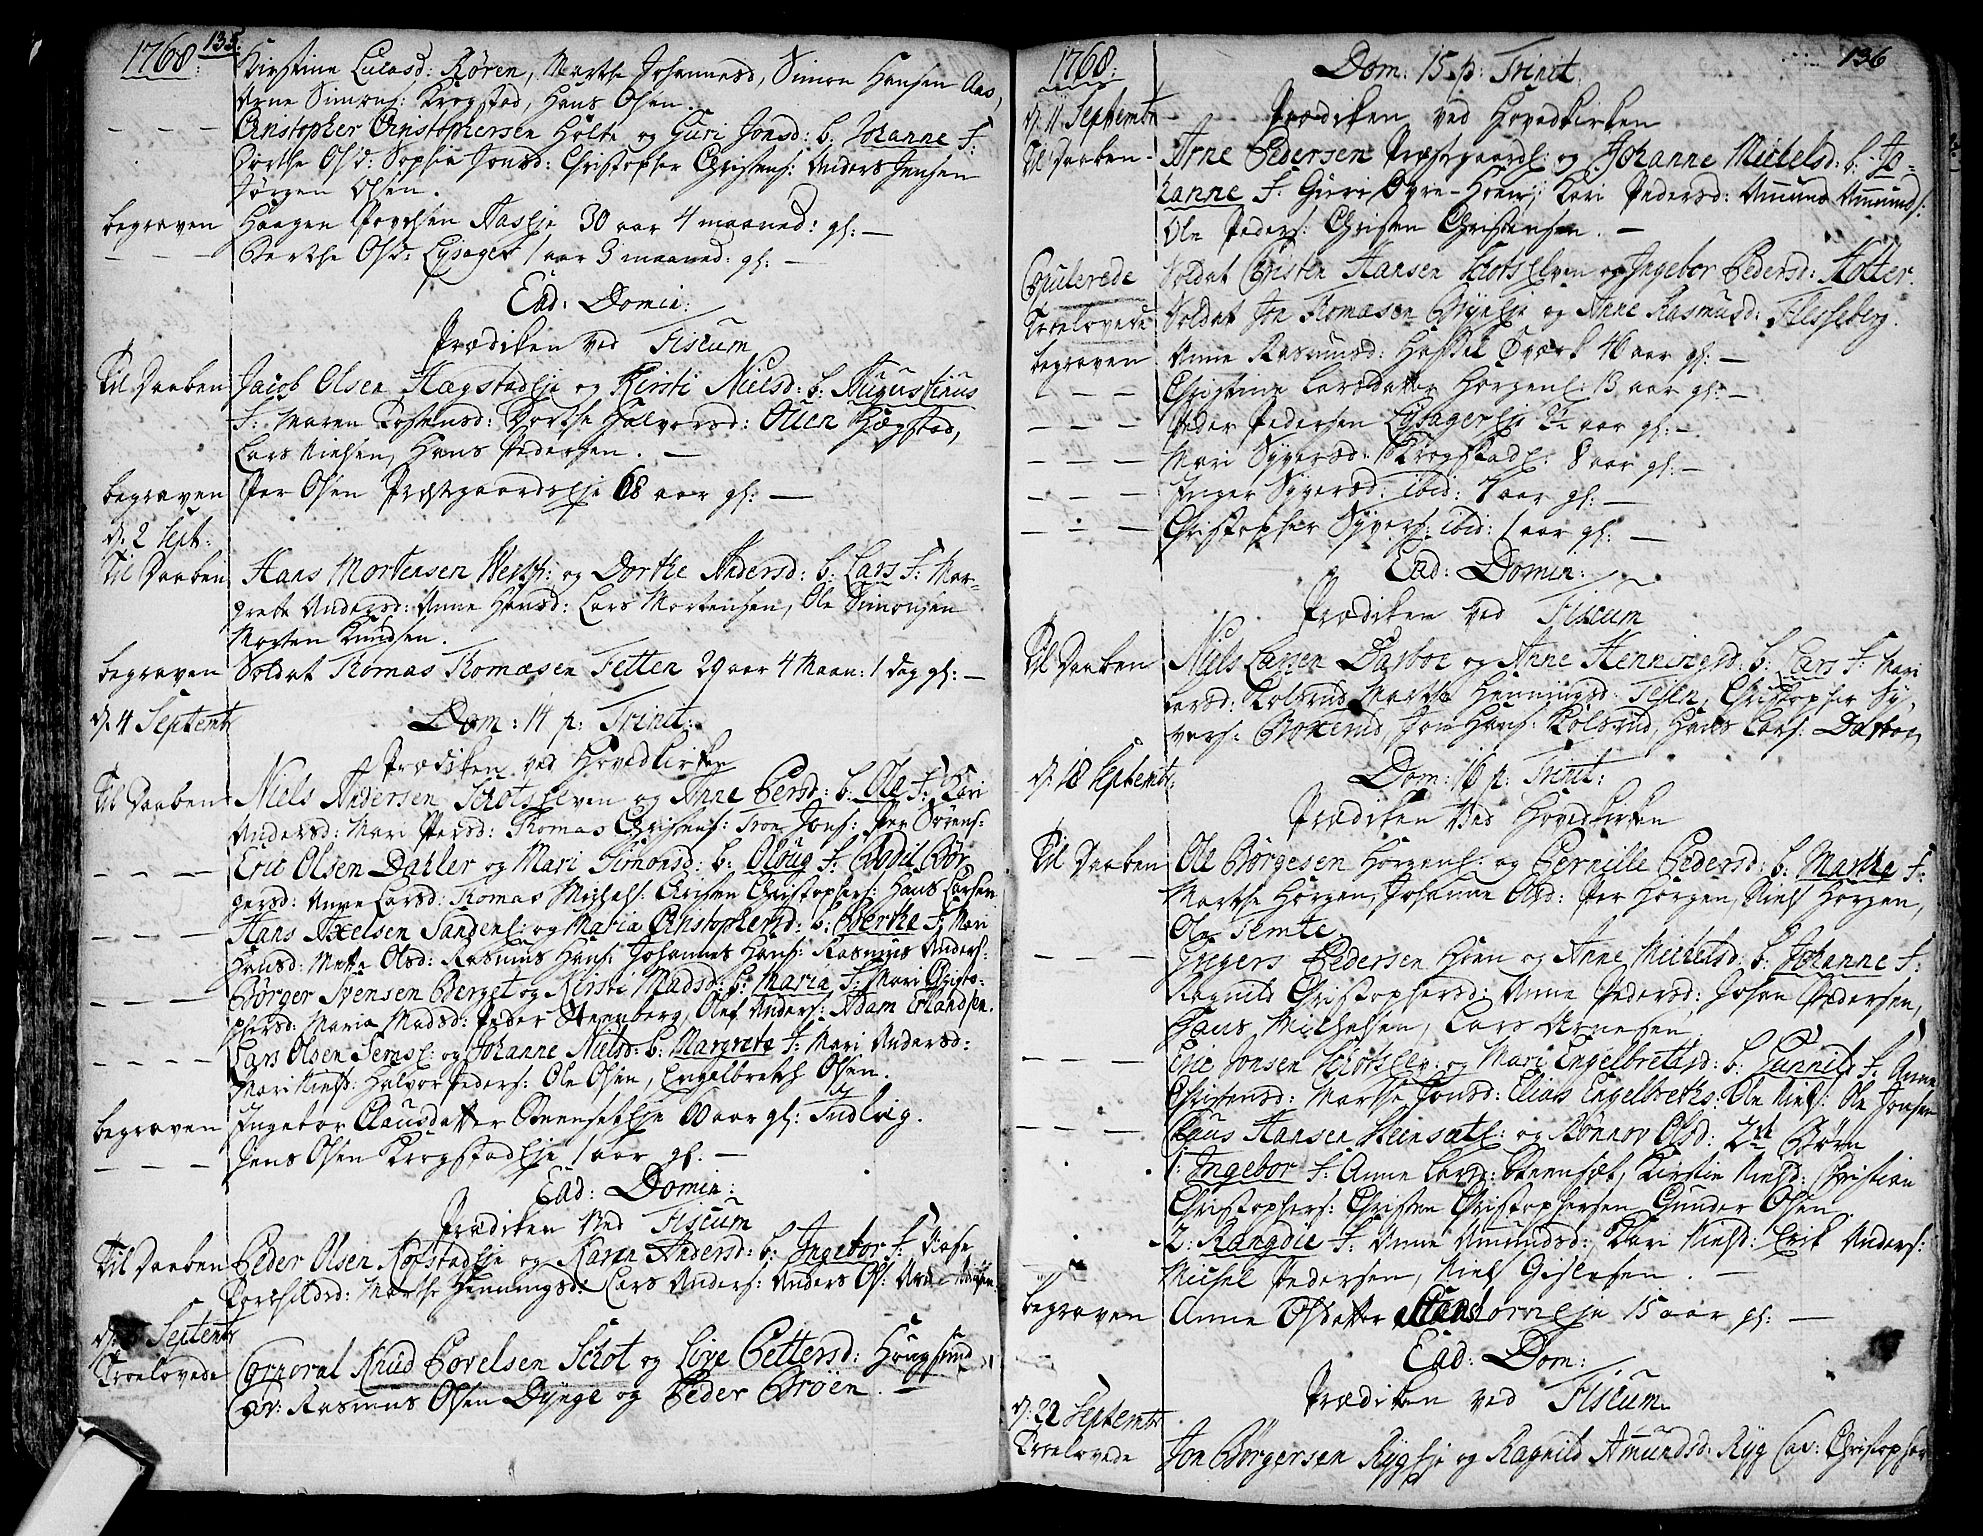 1768. 135.
Kirstine Lucasd: Røren, Marthe Johannesd, Simon Hansen Aas,
Arne Simons: Krogstad, Hans Olsen.
– – – Christopher Christophersen Holte og Guri Jonsd: b. Johanne F:
Dorthe Olsd: Sophie Jonsd: Christopher Christens: Anders Jensen
Jørgen Olsen.
begraven Haagen Povelsen Aaslje 30 aar 4 maaned: gl: –
– – – Berthe Olsd: Lysager 1 aar 3 maaned: gl: –
Ead: Domin:
Prædiken ved Fiscum
Til Daaben Jacob Olsen Hægstadlje og Kirsti Nielsd: b: Augustinus
F: Maren Tostensd: Dorthe Halvorsd: Ouen Hægstad,
Lars Nielsen, Hans Pedersen. –
begraven Per Olsen Præstgaardslje 68 aar gl: –
d. 2 Sept:
Til Daaben Hans Mortensen Westf: og Dorthe Andersd: b: Lars F: Mar-
grete Andersd: Anne Hansd: Lars Mortensen, Ole Simonsen
Morten Knudsen.
begraven Soldat Thomas Thomæsen Tetten 29 aar 4 Maan: 1 dag gl: –
d. 4 Septembr Dom: 14 p: Trinit:
Prædiken ved Hovedkirken
Til Daaben Niels Andersen Schotselven og Anne Persd: b. Ole F: Kari
Andersd: Mari Persd: Thomas Christens: Tron Jons: Per Sørens:
– – – Eric Olsen Dahler og Mari Simonsd: b: Oloug F: Bodil Bør-
gersd: Anne Larsd: Thomas Michels: Christen Christophers: Hans Larsen
– – – Hans Axelsen Sandenl: og Maria Christophersd: b: Berthe F: Mari
Hansd: Mette Olsd: Rasmus Hans: Johannes Hans: Rasmus Anders:
– – – Børger Svensen Berget og Kirsti Madsd: b: Maria F: Mari Christo-
phersd: Maria Madsd: Peder Steenberg, Olef Anders: Adam Erlandsen.
– – – Lars Olsen Semsl: og Johanne Nielsd: b: Margrete F: Mari Andersd:
Mari Nielsd: Halvor Peders: Ole Olsen, Engelbreth Olsen.
begraven Ingebor Clausdatter Steensetlje 60 aar gl: Indlvig.
– – – Jens Olsen Krogstadlje 1 aar gl. –
Ead: Domin:
Prædiken Ved Fiscum
Til Daaben Peder Olsen Kopstadlje og Karen Andersd: b: Ingebor F:
Torchildsd: Marthe Henningsd: Lars Anders: Anders Ols:
Septembr
Troelovede Corporal Knud Povelsen Schot og Live Pettersd: Hougsund
Cav: Rasmus Olsen Dynge og Peder Broen. –
1768. 136
Dom: 15 p: Trinit:
d. 11 Septembr – Prædiken ved Hovedkirken
Til Daaben – Arne Pedersen Præstgaardl: og Johanne Michelsd: b: Jo-
hanne F: Guri Øvre-Hoen, Kari Pedersd: Amund Amunds:
Ole Peders: Christen Christensen. –
Copulerede Soldat Christen Hansen Schotselven og Ingebor Pedersd: Holter.
Troelovede Soldat Jon Thomæsen Bøjelje og Anne Rasmusd: Flesseberg.
begraven Anne Rasmusd: Hassel Øvært 40 aar gl: –
– – – Christine Larsdatter Horgenl: 13 aar gl: –
– – – Peder Pedersen Lysagerlje 22 aar gl: –
– – – Mari Syversd: Krogstadl: 8 aar gl: –
– – – Inger Syversd: ibid: 7 aar gl: –
– – – Christopher Syvers: ibid: 1 aar gl: –
Ead: Domin:
Prædiken ved Fiscum
Til Daaben Niels Larsen Darboe og Anne Henningsd: b: Lars F: Mari
Larsd: Kolsrud, Marthe Henningsd: Teigen, Christopher Sy-
vers: Boxerud, Jon Hans: Kolsrud, Hans Lars: Darboe
d. 18 Septembr: Dom: 16 p: Trinit:
Prædiken Ved Hovedkirken
Til Daaben Ole Børgesen Horgenl: og Pernille Pedersd: b: Marthe F:
Marthe Horgen, Johanne Olsd: Per Horgen, Niels Horgen,
Ole Temte.
– – – Gregers Pedersen Hoen og Anne Michelsd: b: Johanne F:
Ragnild Christophersd: Anne Pedersd: Johan Pedersen,
Hans Michelsen, Lars Arnesen.
– – – Eric Jonsen Schotselv: og Mari Engelbretsd: b: Gunnild F: Anne
Christensd: Marthe Jonsd: Elias Engelbreths: Ole Niels: Ole Jonsen
– – – Claus Hansen Steensetl: og Rønnov Olsd: 2de Børn
1: Ingebor F: Anne Larsd: Steenset, Kirstin Nielsd: Christian
Christophers: Christen Christophersen Gunder Olsen.
2: Rangdie F: Anne Amundsd: Kari Nielsd: Erik Anders:
Michel Pedersen, Niels Gislesen. –
begraven Anne Olsdatter 15 aar gl: –
Ead: Dom:
Prædiken ved Fiscum
d. 22 Septembr.
Troelovede Jon Børgersen Ryglje og Ragnild Amundsd: Ryg Cav: Christopher